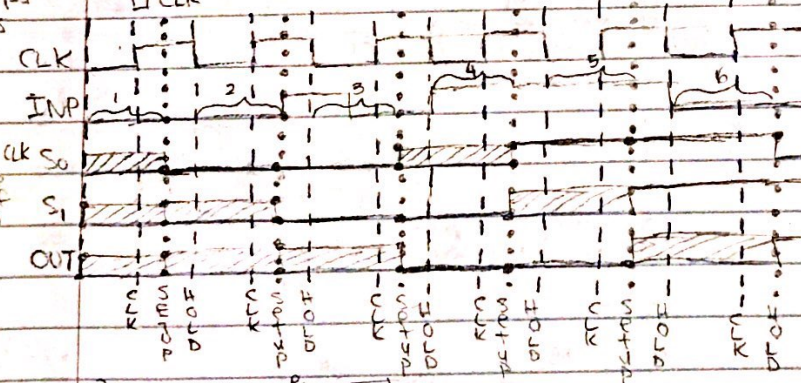 CLK
CLK
1 2 3 4 5 6
INP
CLK S0
S1
OUT
CLK SETUP HOLD CLK SETUP HOLD CLK SETUP HOLD CLK SETUP HOLD CLK SETUP HOLD CLK HOLD